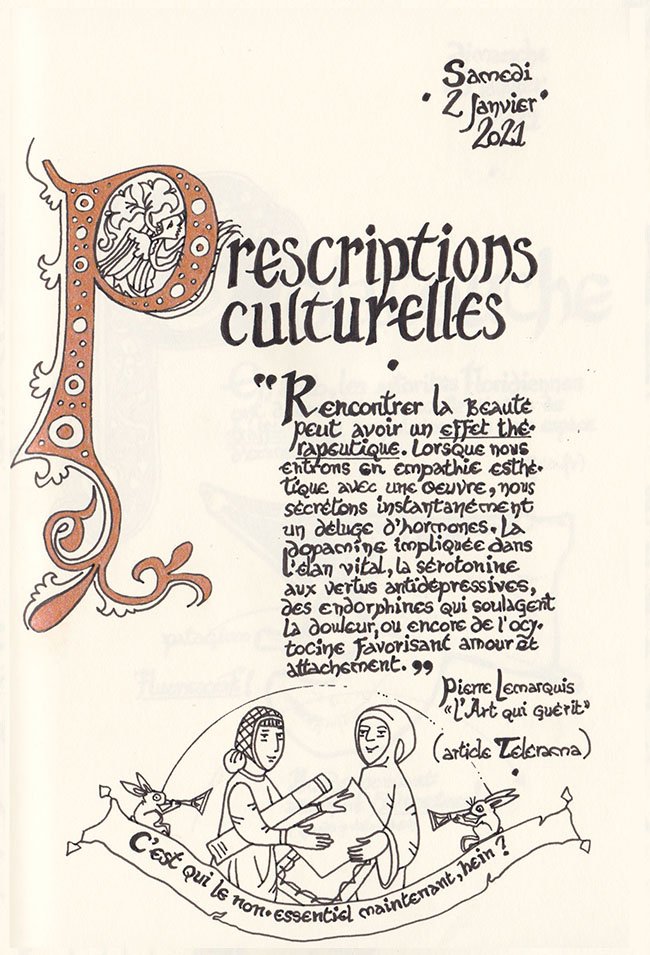 Samedi
• 2 Janvier •
2021
Prescriptions
culturelles
•
"Rencontrer la Beauté
peut avoir un effet thé-
rapeutique. Lorsque nous
entrons en empathie esthé-
tique avec une oeuvre, nous
sécrétons instantanément
un déluge d'hormones. La
dopamine impliquée dans
l'élan vital, la sérotonine
aux vertus antidépressives,
des endorphines qui soulagent
la douleur, ou encore de l'ocy-
tocine favorisant amour et
attachement."
Pierre Lemarquis
"L'Art qui guérit"
(article Télérama)
C'est qui le non-essentiel maintenant, hein ?